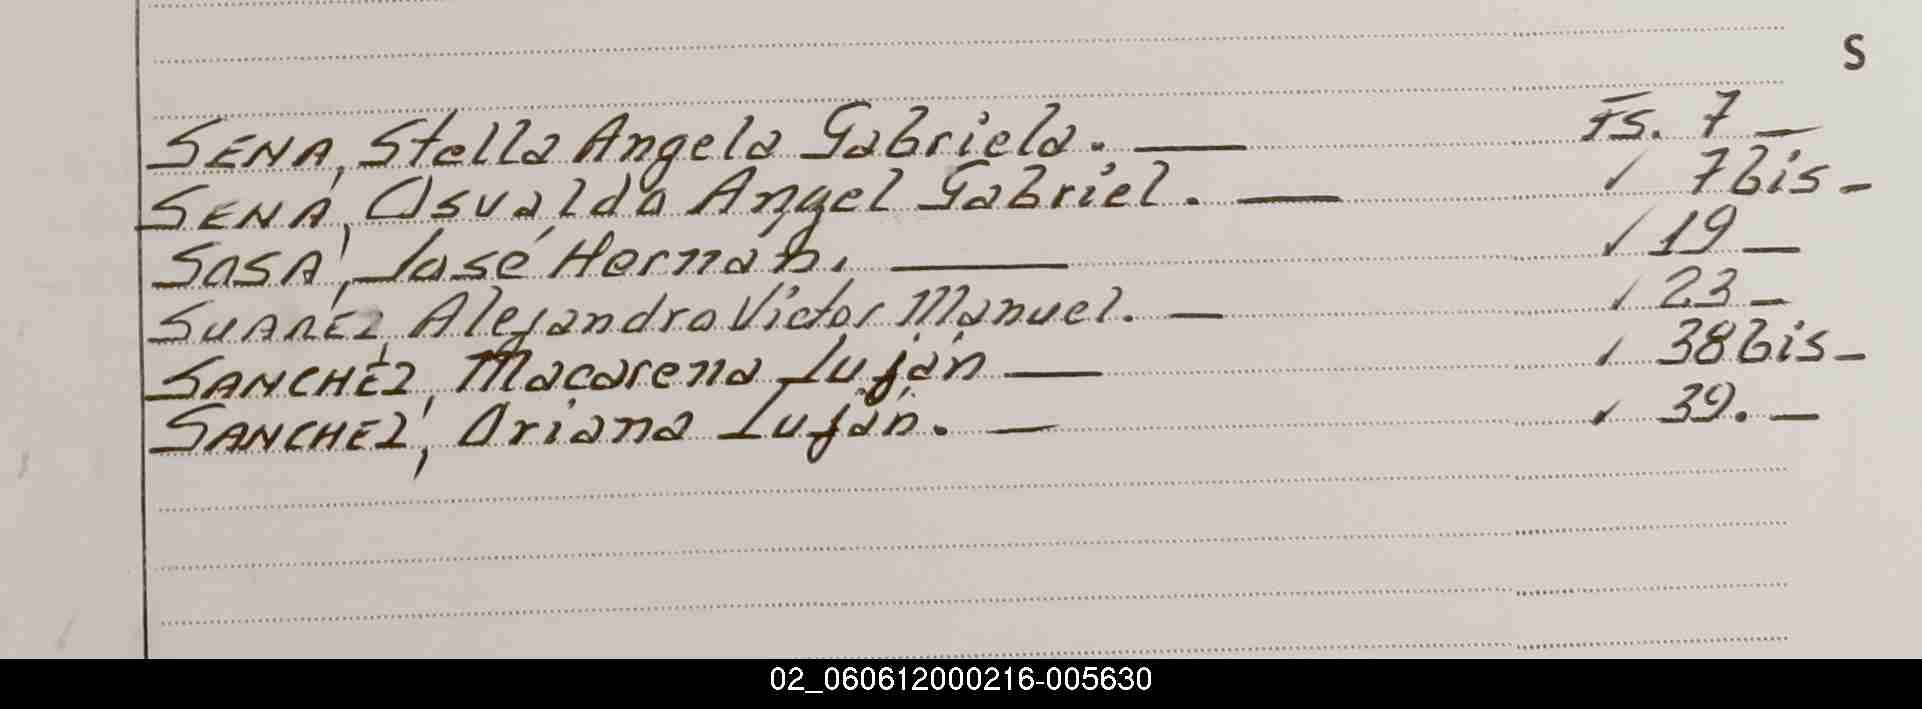 S
SENA, Stella Angela Gabriela. — Fs. 7 —
SENA, Osvaldo Angel Gabriel. — ✓ 7 bis —
SOSA, José Hernán. — ✓ 19 —
SUAREZ, Alejandro Victor Manuel. — ✓ 23 —
SANCHEZ, Macarena Luján — ✓ 38 bis —
SANCHEZ, Oriana Luján. — ✓ 39. —
02_060612000216-005630